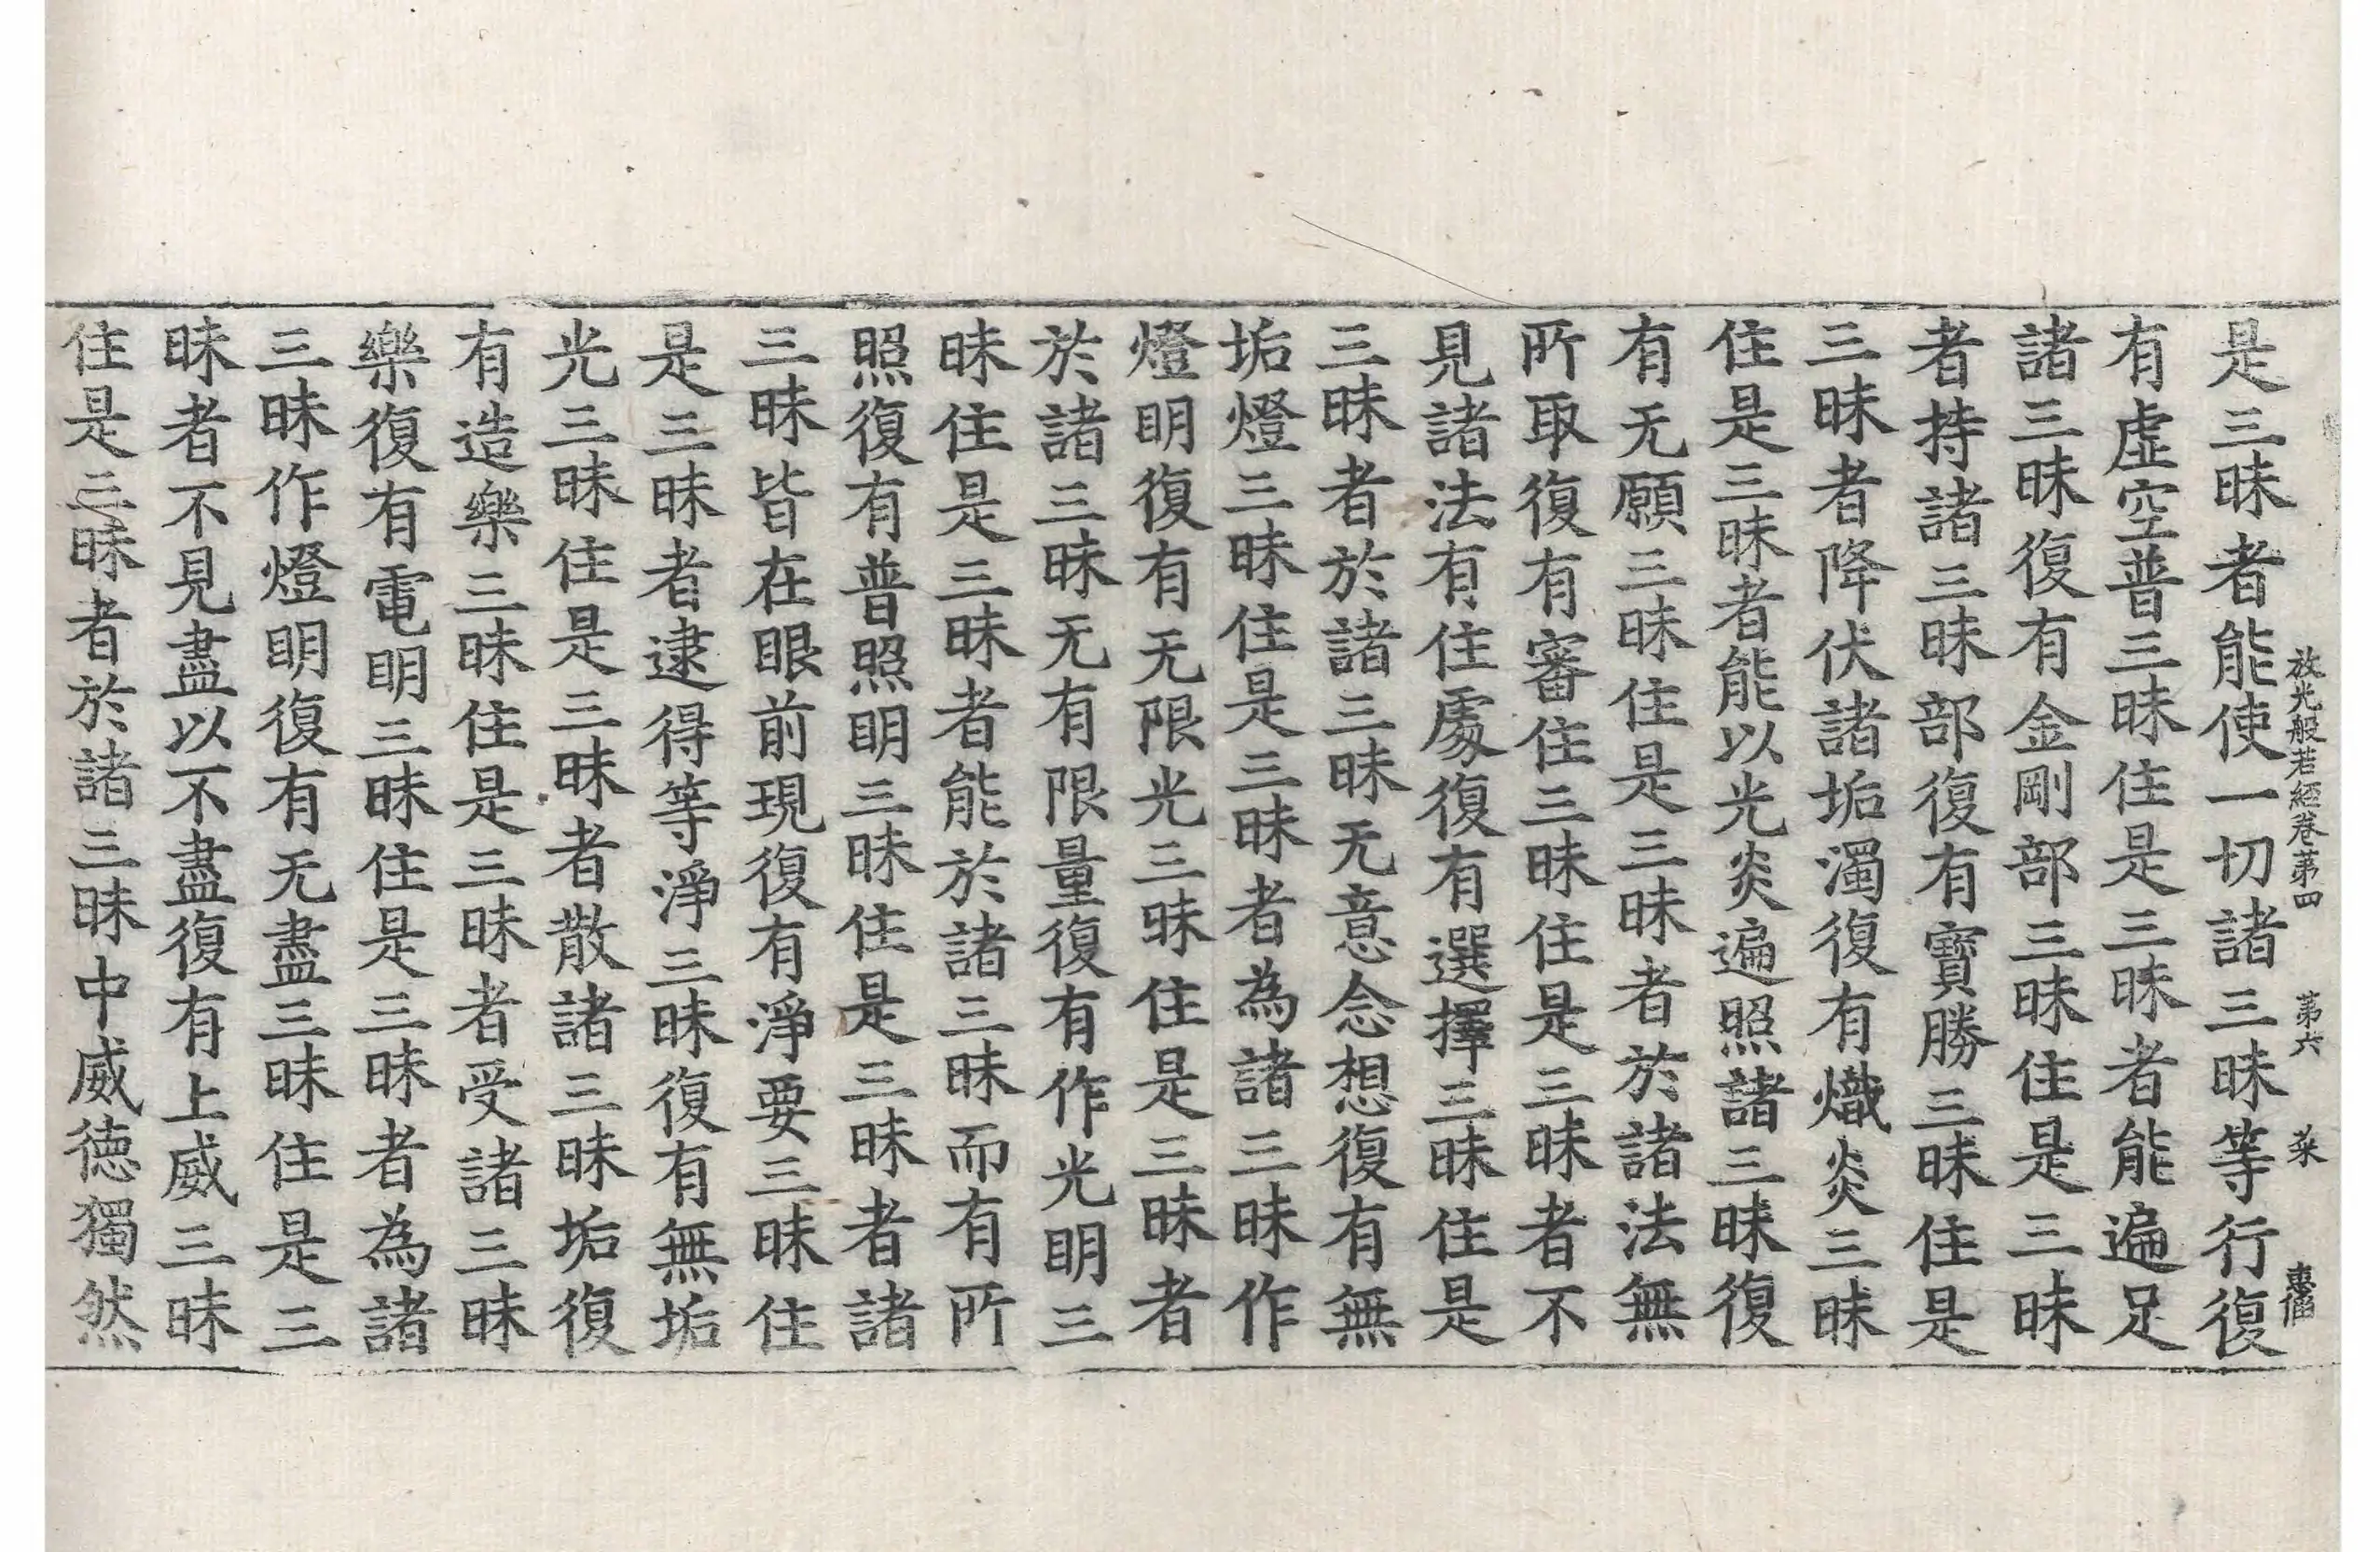 放光般若経卷第四 第六 菜
是三昧者能使一切諸三昧等行復
有虛空普三昧住是三昧者能遍足
諸三昧復有金剛部三昧住是三昧
者持諸三昧部復有寶勝三昧住是
三昧者降伏諸垢濁復有熾炎三昧
住是三昧者能以光炎遍照諸三昧復
有无願三昧住是三昧者於諸法無
所取復有審住三昧住是三昧者不
見諸法有住處復有選擇三昧住是
三昧者於諸三昧无意念想復有無
垢燈三昧住是三昧者為諸三昧作
燈明復有无限光三昧住是三昧者
於諸三昧无有限量復有作光明三
昧住是三昧者能於諸三昧而有所
照復有普照明三昧住是三昧者諸
三昧皆在眼前現復有淨要三昧住
是三昧者逮得等淨三昧復有無垢
光三昧住是三昧者散諸三昧垢復
有造樂三昧住是三昧者受諸三昧
樂復有電明三昧住是三昧者為諸
三昧作燈明復有无盡三昧住是三
昧者不見盡以不盡復有上威三昧
住是三昧者於諸三昧中威德獨然